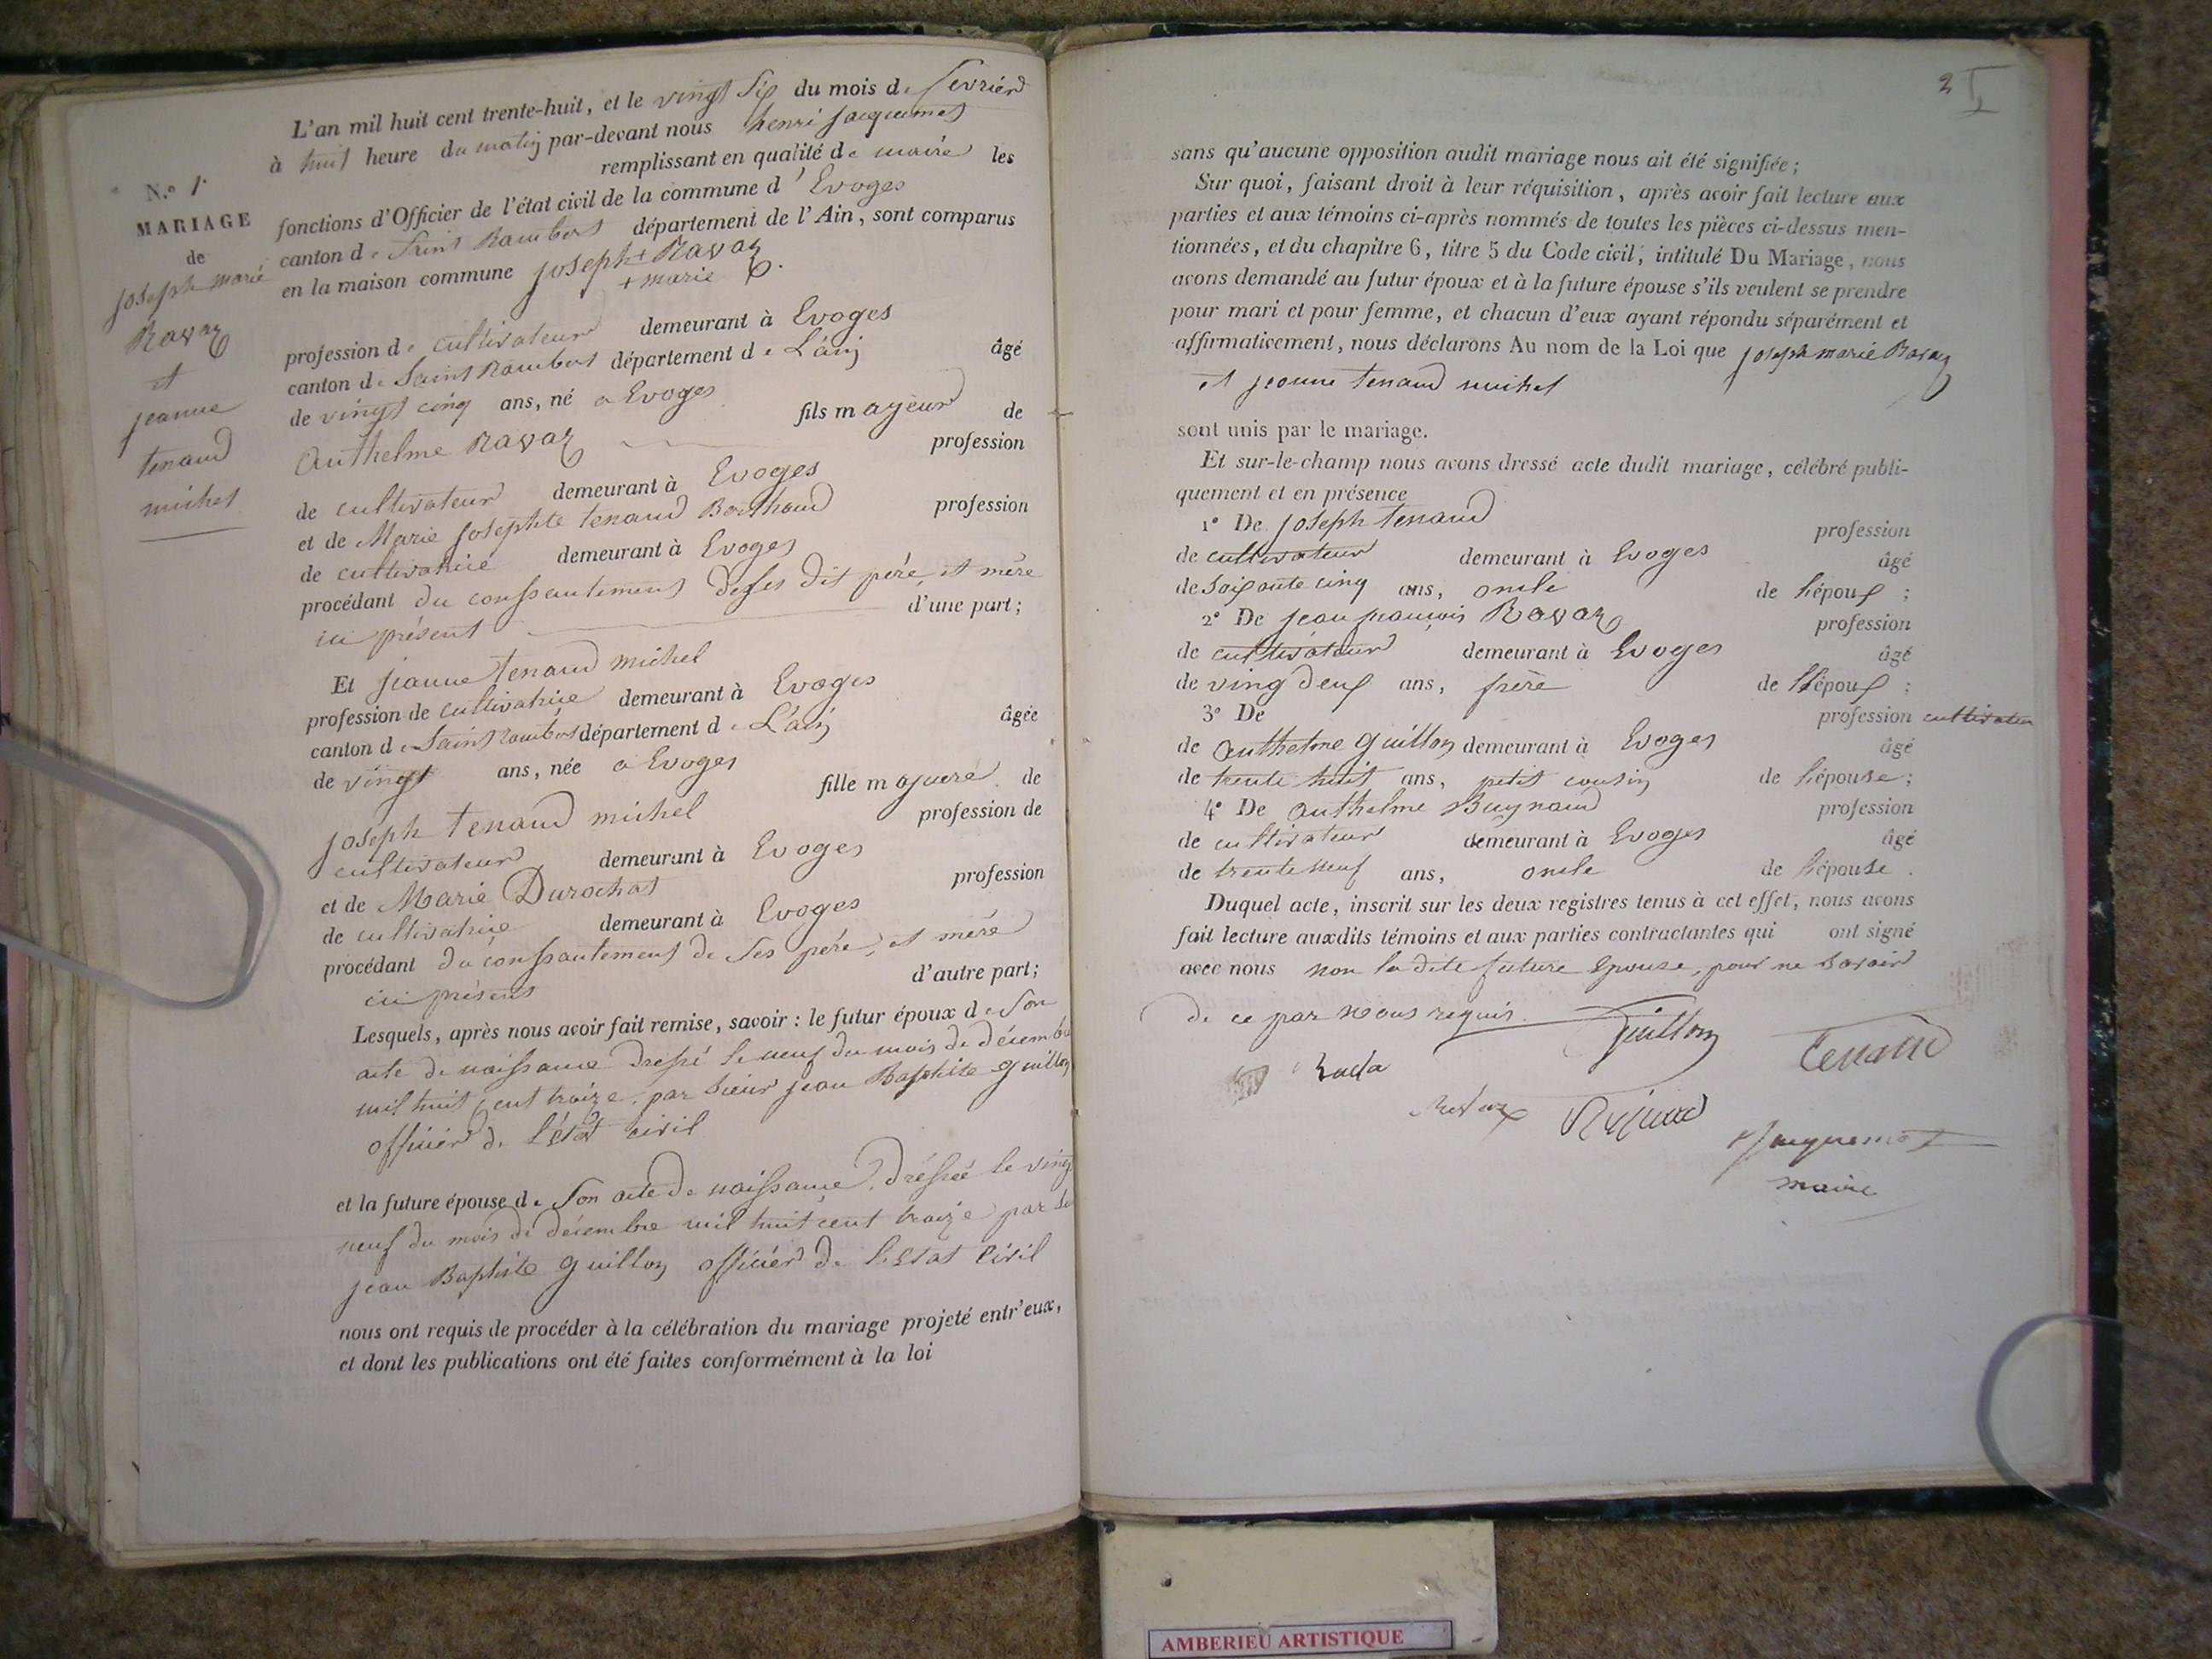 L'an mil huit cent trente-huit, et le vingt six du mois de fevrier
à huit heure du matin par-devant nous henri jacquemet
remplissant en qualité de maire les
fonctions d'Officier de l'état civil de la commune d'Evoges
canton de Saint Rambert département de l'Ain, sont comparus
en la maison commune joseph + Ravaz
+ marie
N.º 1
MARIAGE
de
joseph marie
Ravaz
et
jeanne
tenand
michel
profession de cultivateur demeurant à Evoges
canton de Saint Rambert département de L'ain âgé
de vingt cinq ans, né a Evoges fils mageur de
Anthelme Ravaz profession
de cultivateur demeurant à Evoges
et de Marie josephte tenand Berthoud profession
de cultivatrice demeurant à Evoges
procédant du consantement deses dit père et mère
ici présent d'une part;
Et jeanne tenand michel
profession de cultivatrice demeurant à Evoges
canton de Saint Rambert département de L'ain âgée
de vingt ans, née a Evoges fille majeure de
joseph tenand michel profession de
cultivateur demeurant à Evoges
et de Marie Durochat profession
de cultivatrice demeurant à Evoges
procédant du consantement de ses père et mère
ici présent d'autre part;
Lesquels, après nous avoir fait remise, savoir : le futur époux de son
acte de naissance dressé le neuf du mois de décembre
mil huit cent traize par Sieur jean Baptiste guillon
officier de l'état civil
et la future épouse de Son acte de naissance dressée le vingt
neuf du mois de décembre mil huit cent traize par
jean Baptiste guillon officier de l'état civil
nous ont requis de procéder à la célébration du mariage projeté entr'eux,
et dont les publications ont été faites conformément à la loi
2
sans qu'aucune opposition audit mariage nous ait été signifiée;
Sur quoi, faisant droit à leur réquisition, après avoir fait lecture aux
parties et aux témoins ci-après nommés de toutes les pièces ci-dessus men-
tionnées, et du chapitre 6, titre 5 du Code civil, intitulé Du Mariage, nous
avons demandé au futur époux et à la future épouse s'ils veulent se prendre
pour mari et pour femme, et chacun d'eux ayant répondu séparément et
affirmativement, nous déclarons Au nom de la Loi que joseph marie Ravaz
et jeanne tenand michel
sont unis par le mariage.
Et sur-le-champ nous avons dressé acte dudit mariage, célébré publi-
quement et en présence
1º De joseph tenand profession
de cultivateur demeurant à Evoges âgé
de soixante cinq ans, oncle de l'époux ;
2º De jean françois Ravaz profession
de cultivateur demeurant à Evoges âgé
de ving deux ans, frère de l'époux ;
3º De profession cultivateur
de Anthelme guillon demeurant à Evoges âgé
de trente huit ans, petit cousin de l'épouse;
4º De Anthelme Buynand profession
de cultivateur demeurant à Evoges âgé
de trente neuf ans, oncle de l'épouse.
Duquel acte, inscrit sur les deux registres tenus à cet effet, nous avons
fait lecture auxdits témoins et aux parties contractantes qui ont signé
avec nous non la dite future épouse, pour ne savoir
de ce par nous requis.
Guillon
Tenand
Ravaz
Jacquemet
maire
AMBERIEU ARTISTIQUE